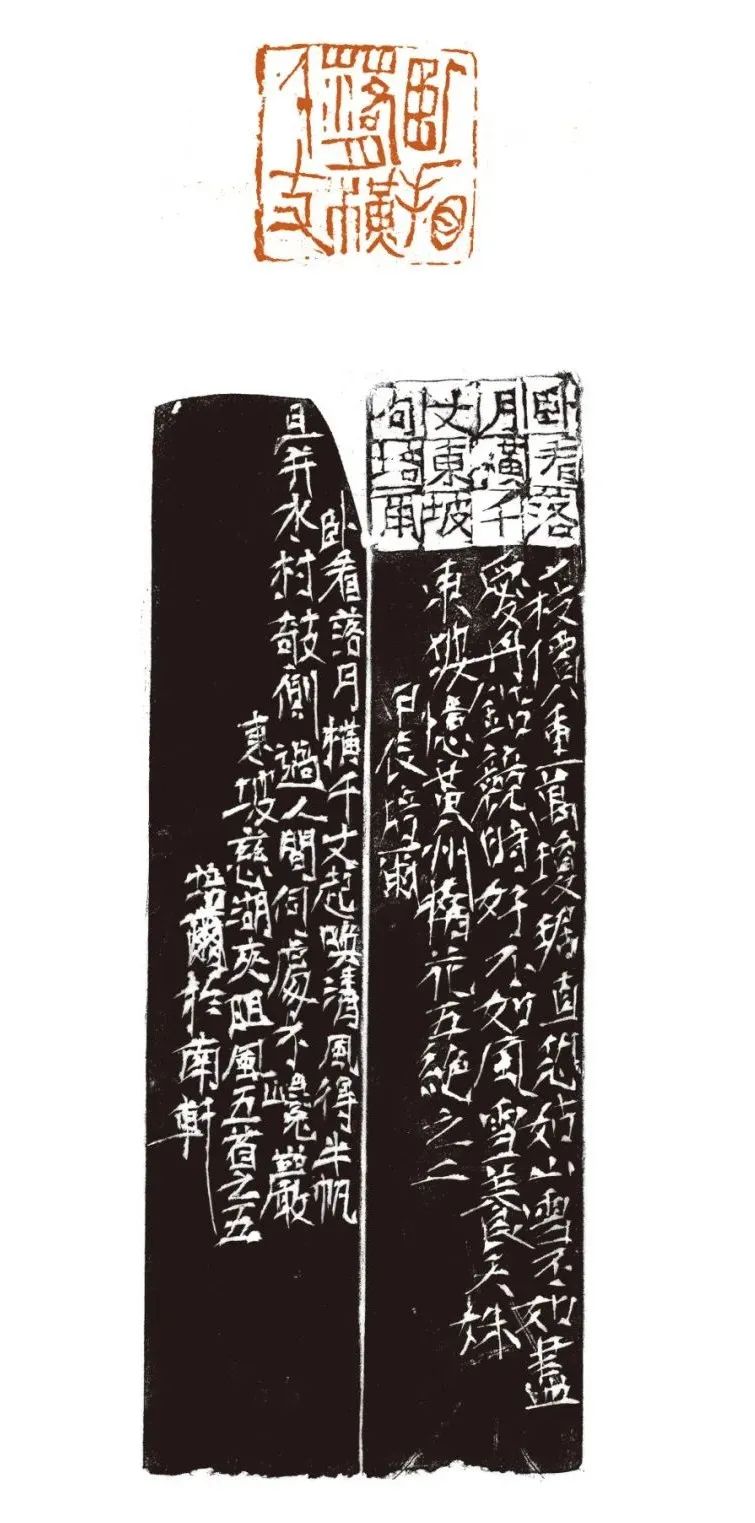 臥看
落月橫
千丈
臥看落
月橫千
丈東坡
句培爾
一枝價重萬瓊琚直恐姑山雪不如盡
愛丹鉛競時好不如風雪養天姝
東坡憶黃州梅花五絕之二
甲辰培爾
臥看落月橫千丈起喚清風得半帆
且并水村欹側過人間何處不巉巖
東坡慈湖夾阻風五首之五
培爾於南軒